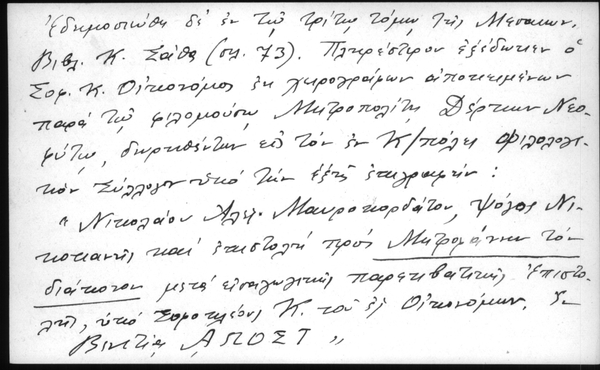 Ἐδημοσιεύθη δὲ ἐν τῷ τρίτῳ τόμῳ τῆς Μεσαιων.
Βιβλ. Κ. Σάθα (σελ. 73). Πληρέστερον ἐξέδωκεν ὁ
Σοφ. Κ. Οἰκονόμος ἐκ χειρογράφων ἀποκειμένων
παρὰ τῷ φιλομούσῳ Μητροπολίτῃ Δέρκων Νεο-
φύτῳ, δωρηθέντων εἰς τὸν ἐν Κ/πόλει Φιλολογι-
κὸν Σύλλογον ὑπὸ τὴν ἑξῆς ἐπιγραφήν :
" Νικολάου Ἀλεξ. Μαυροκορδάτου, ψόγος Νι-
κοτιανῆς καὶ ἐπιστολὴ πρὸς Μητροφάνην τὸν
διάκονον μετὰ εἰσαγωγικῆς παρεκβατικῆς ἐπιστο-
λῆς, ὑπὸ Σοφοκλέους Κ. τοῦ ἐξ Οἰκονόμων. Ἐν
Βενετίᾳ ΑΩΟΣΤ "